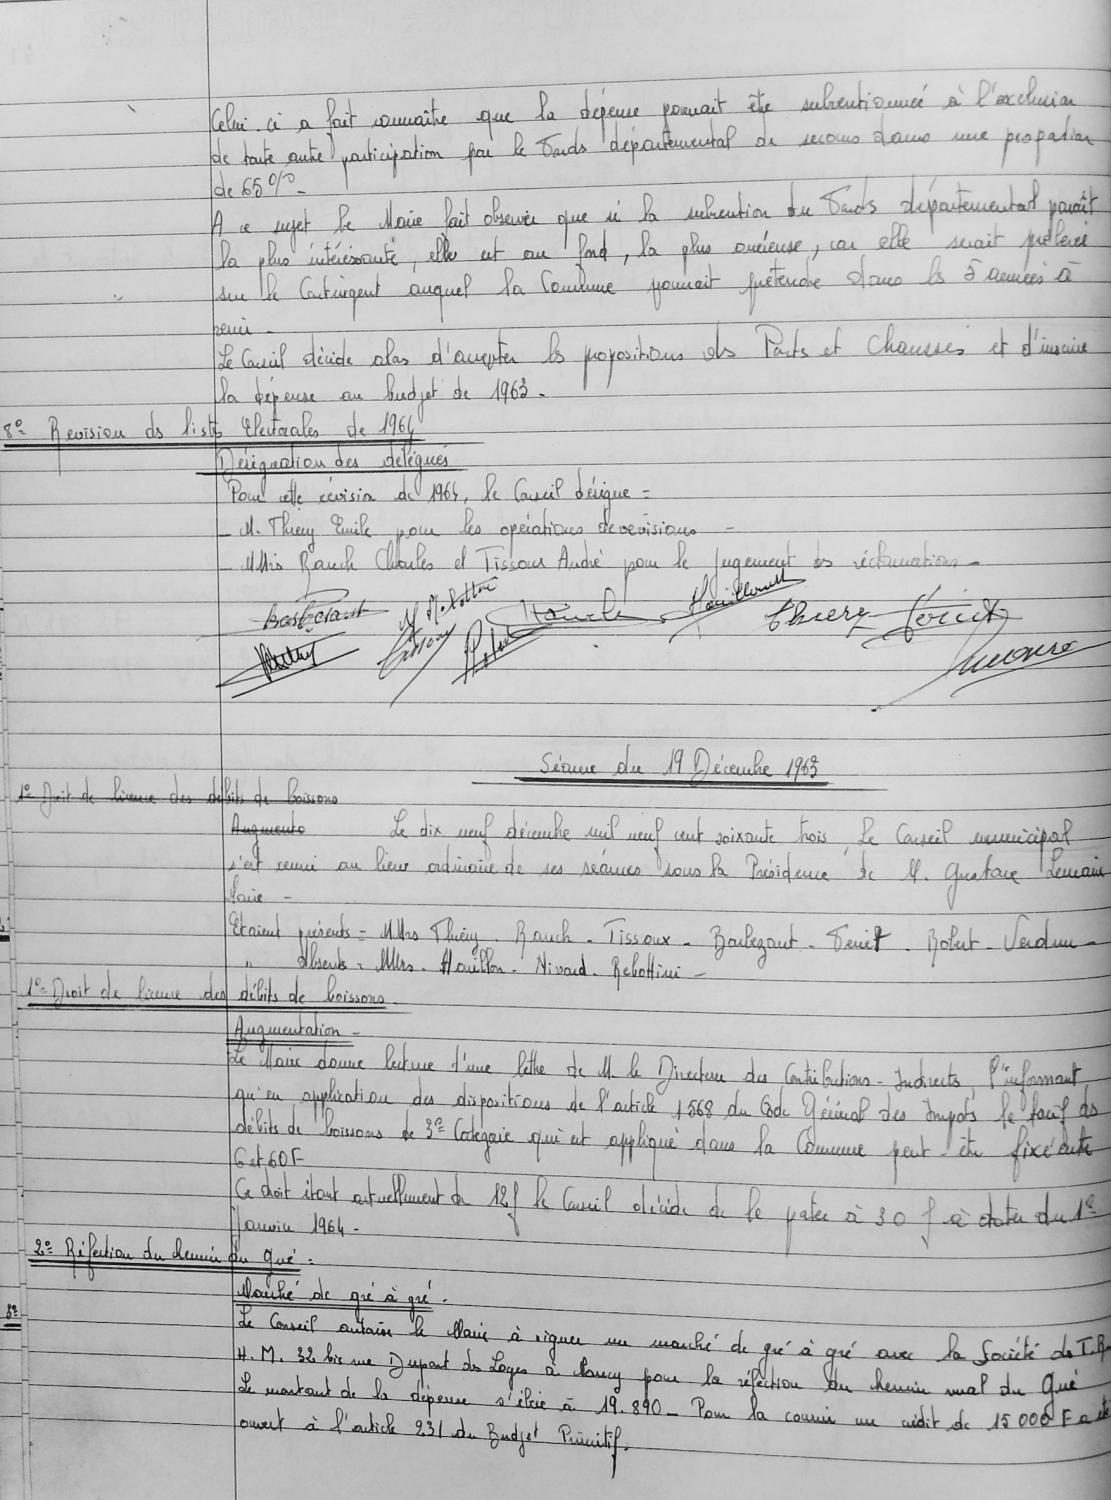 Celui-ci a fait connaître que la dépense pouvait être subventionnée à l'exclusion
de toute autre participation par le Fonds départemental de secours dans une proportion
de 65 %.
A ce sujet le Maire fait observer que si la subvention du Fonds départemental paraît
la plus intéressante, elle est au fond, la plus onéreuse, car elle serait prélevée
sur le Contingent auquel la Commune pourrait prétendre dans les 5 années à
venir -
Le Conseil décide alors d'accepter les propositions des Ponts et Chaussées et d'inscrire
la dépense au budget de 1963.
8° Revision des listes Electorales de 1964
Désignation des délégués
Pour cette révision de 1964, le Conseil désigne =
- M. Thiery Emile pour les opérations de revisions -
- MMrs Rauch Charles et Tissoux André pour le Jugement des réclamations -
Barbezant Rebottini Rauch Houillon Thiery Feriet
Tissoux Robert Lemaire
Séance du 19 Décembre 1963
1° Droit de licence des débits de boissons
Augmente Le dix neuf décembre mil neuf cent soixante trois, Le Conseil municipal
s'est reuni au lieu ordinaire de ses séances sous la Présidence de M. Gustave Lemaire
Maire -
Etaient présents = MMrs Thiéry - Rauch - Tissoux - Barbezant - Feriet - Robert - Verdun -
" Absents = MMrs - Houillon - Nivard - Rebottini -
1° Droit de licence des débits de boissons.
Augmentation -
Le Maire donne lecture d'une lettre de M. le Directeur des Contributions - Indirects, l'informant
qu'en application des dispositions de l'article 1568 du Code Général des Impots le tarif des
débits de boissons de 3e Catégorie qui est appliqué dans la Commune peut être fixé entre
6 et 60 F
Ce droit étant actuellement de 12 f le Conseil décide de le porter à 30 f à dater du 1er
Janvier 1964 -
2° Réfection du chemin du Gué =
Marché de gré à gré.
3°
Le Conseil autorise le Maire à signer un marché de gré à gré avec la Société des T.R.
H. M. 32 bis rue Dupont des Loges à Nancy pour la réfection du chemin rural du Gué
Le montant de la dépense s'élève à 19.890 - Pour la couvrir un crédit de 15 000 F a été
ouvert à l'article 231 du Budget Primitif.